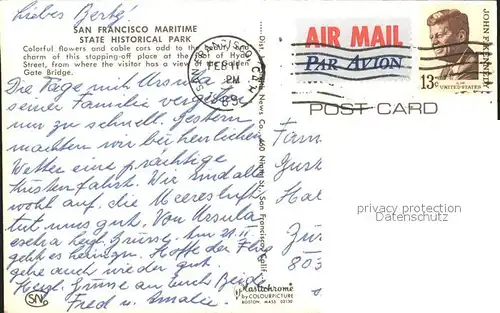 Liebes Berteli!
SAN FRANCISCO MARITIME
STATE HISTORICAL PARK
Colorful flowers and cable cars add to the beauty and
charm of this stopping-off place at the of Hyde
Street, from where the visitor has a view of Golden
Gate Bridge.
Die Tage mit Ursula &
seiner Familie vergehen
nur zu schnell. Gestern
machten wir bei herrlichem
Wetter eine prächtige
Küstenfahrt. Wir sind alle
wohl auf. die Meeresluft
tut uns gut. Von Ursula
herzl. Grüsse. am 21. II
geht es heimzu. Hoffe der Flug
gehe auch wieder gut.
Herzl. Grüsse an Euch Beide
Fred u. Amalie.
SN
SAN FRANCISCO CA
FEB 11
PM
AIR MAIL
PAR AVION
JOHN F. KENNEDY
13c
UNITED STATES
POST CARD
News Co., 460 Ninth St., San Francisco, Calif.
Fam
Gus
Hal
Zü
803
Plastichrome
by COLOURPICTURE
BOSTON, MASS 02130
Privacy protection
Datenschutz